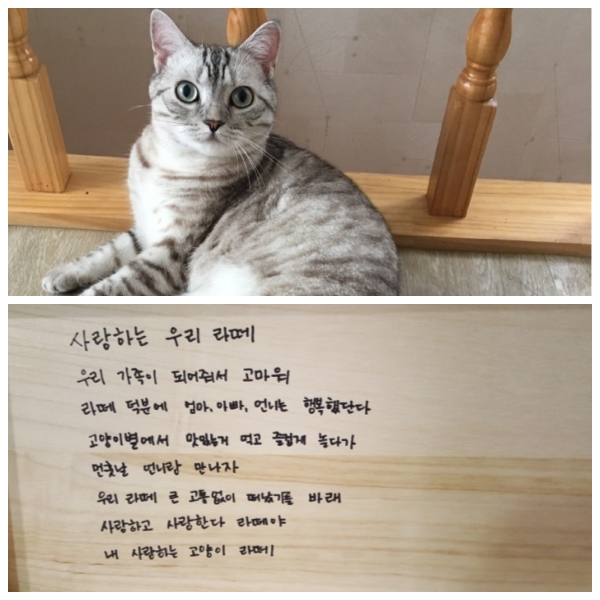 사랑하는 우리 라떼
우리 가족이 되어줘서 고마워
라떼 덕분에 엄마, 아빠, 언니는 행복했단다
고양이별에서 맛있는거 먹고 즐겁게 놀다가
먼훗날 언니랑 만나자
우리 라떼 큰 고통없이 떠났기를 바래
사랑하고 사랑한다 라떼야
내 사랑하는 고양이 라떼